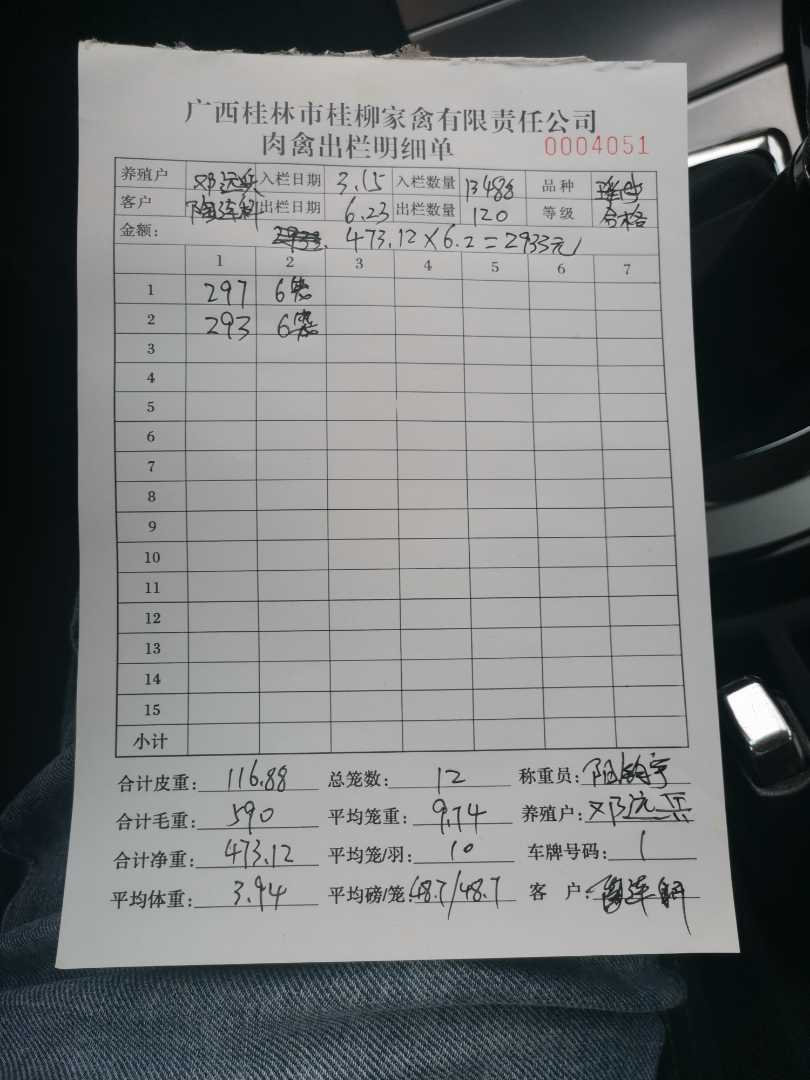 广西桂林市桂柳家禽有限责任公司
肉禽出栏明细单 0004051
养殖户 邓远兵 入栏日期 3.15 入栏数量 13488 品种
客户 陶连科 出栏日期 6.23 出栏数量 120 等级 合格
金额: 2933. 473.12×6.2=2933元
1 2 3 4 5 6 7
1 297 6笼
2 293 6笼
3
4
5
6
7
8
9
10
11
12
13
14
15
小计
合计皮重: 116.88 总笼数: 12 称重员: 阳
合计毛重: 590 平均笼重: 9.74 养殖户: 邓远兵
合计净重: 473.12 平均笼/羽: 10 车牌号码: 1
平均体重: 3.94 平均磅/笼: 48.7/48.7 客 户: 陶连科